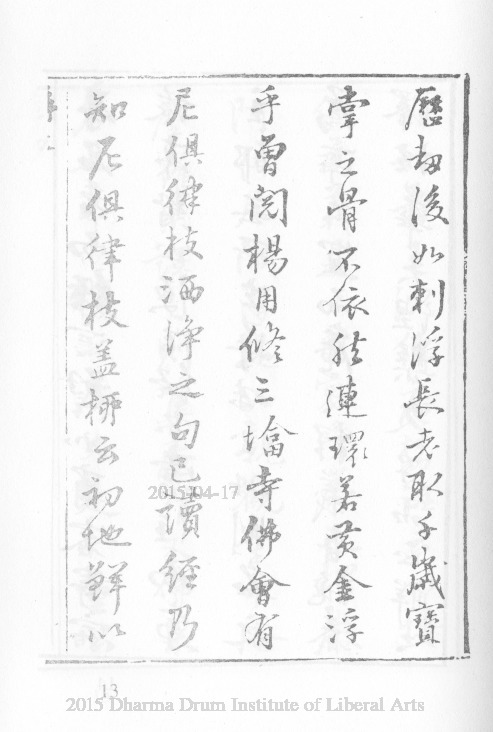 歷劫後如刺浮長老取千歲寶
掌之骨不依然連環若黃金浮
乎曾閱楊用修三墖寺佛會有
尼俱律枝洒淨之句已讀經乃
知尼俱律枝蓋栁云初地鮮以
2015-04-17
13
2015 Dharma Drum Institute of Liberal Arts